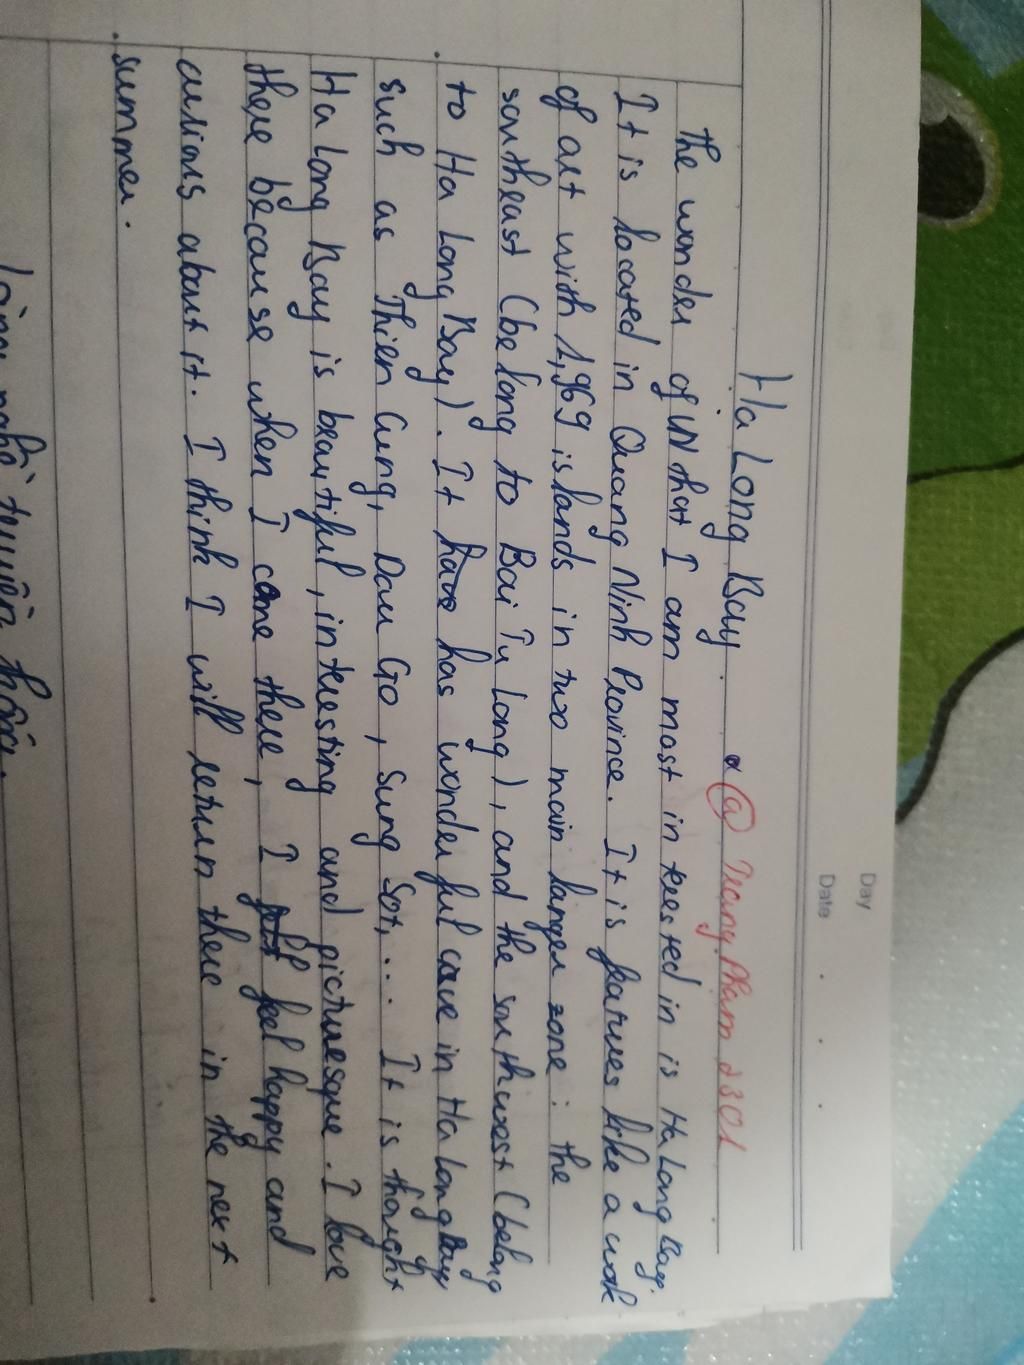 Day
Date
Ha Long Bay. @ Trang Pham 2301
the wonder of VN that I am most in teested in is Ha Long Bay.
It is located in Quang Ninh Province. It is farues like a work
of art with 1,969 islands in two main langer zone : the
southeast (belong to Bai Tu Long), and the southwest (belong
to Ha Long Bay). It have has wonderful cave in Ha Long Bay
such as Thien Cung, Dau Go, Sung Sot,... It is thought
Ha Long Bay is beautiful, interesting and picturesque. I love
there because when I come there, I feel happy and
curious about it. I think I will return there in the next
summer.
Làng nghề truyền thống.